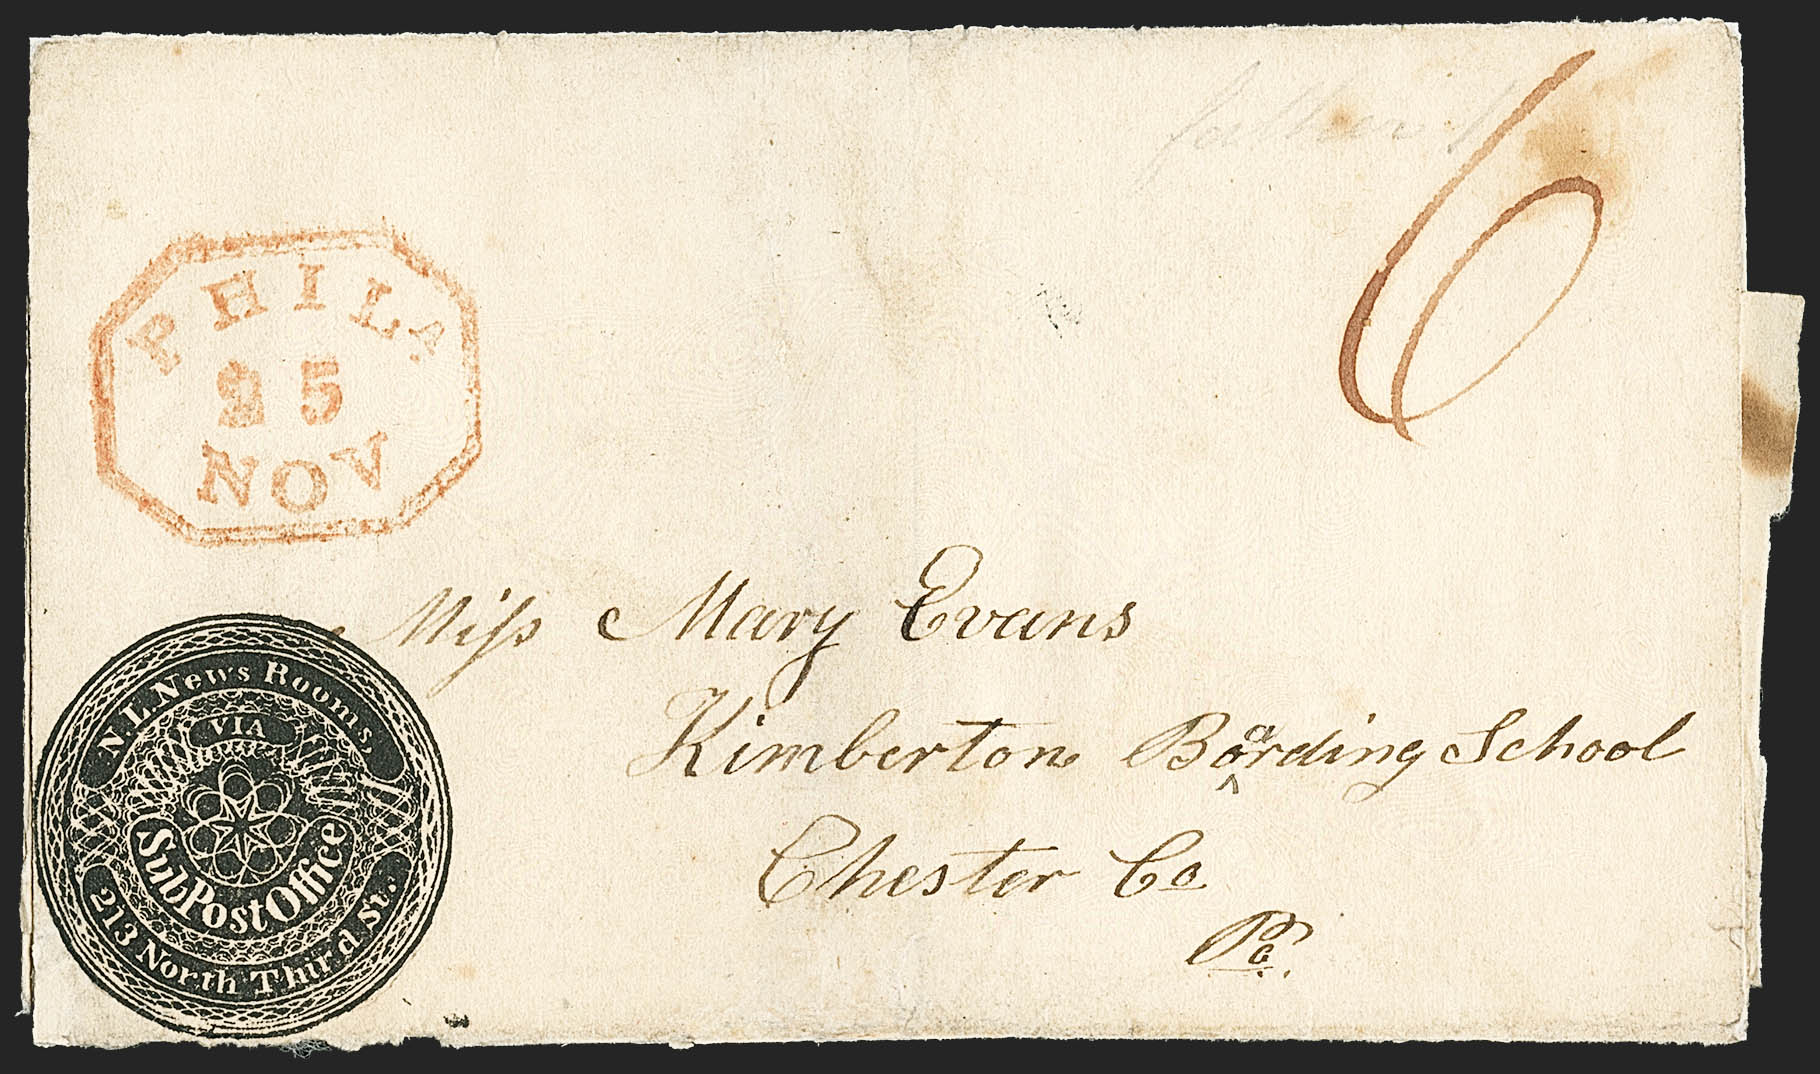 father
6
PHILA
25
NOV
Miss Mary Evans
Kimberton Boarding School
Chester Co
Pa.
N.L. News Rooms,
VIA
Sub Post Office
213 North Third St.